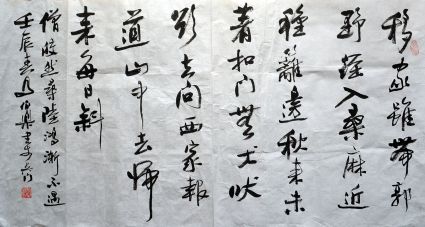 移家雖帶郭
野徑入桑麻近
種籬邊秋来未
著扣門無犬吠
欲去問西家報
道山中去歸
来每日斜
僧皎然尋陸鴻漸不遇
壬辰春月